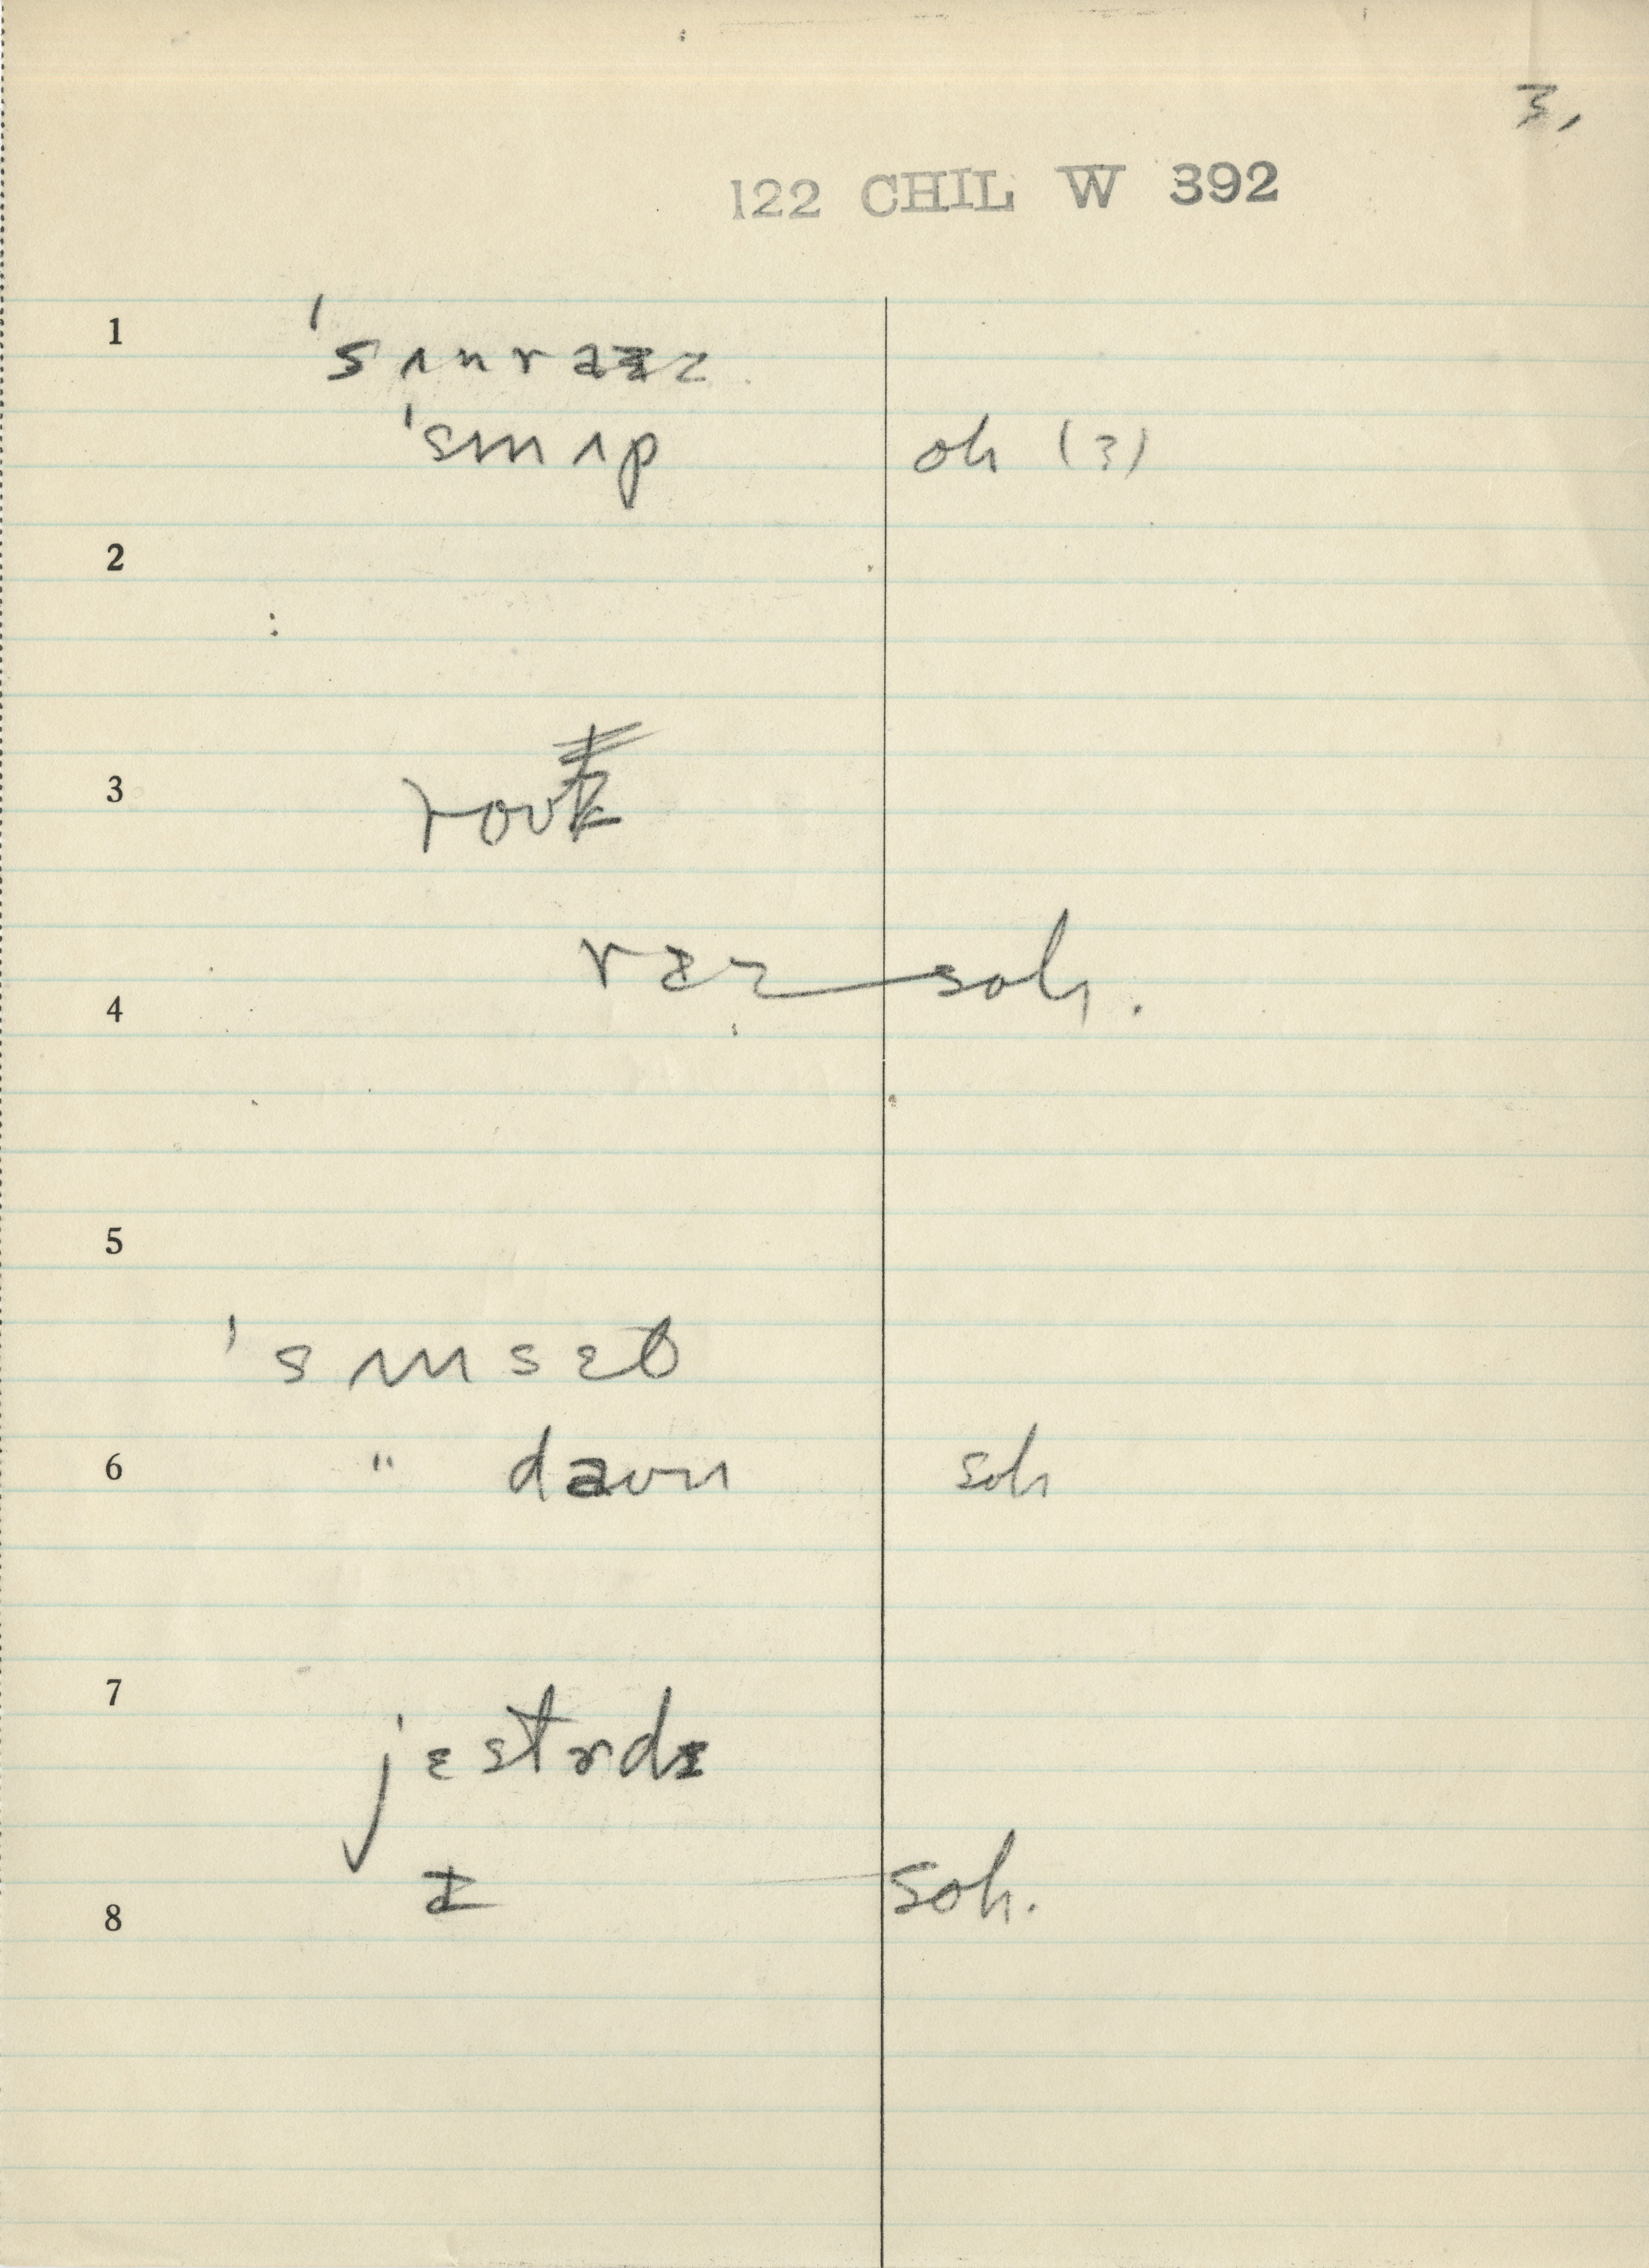 3,
122 CHIL W 392
1 'sʌnraɪz
'sʌnʌp oh (?)
2
3 rouz
4 rɪz soh.
5
'sʌnsɛt
6 " daun soh
7 jɛstɚdɪ
8 ɪ soh.